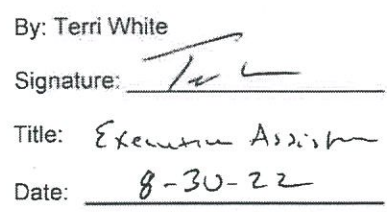 By: Terri White
Signature:
Title: Executive Assistant
Date: 8-30-22